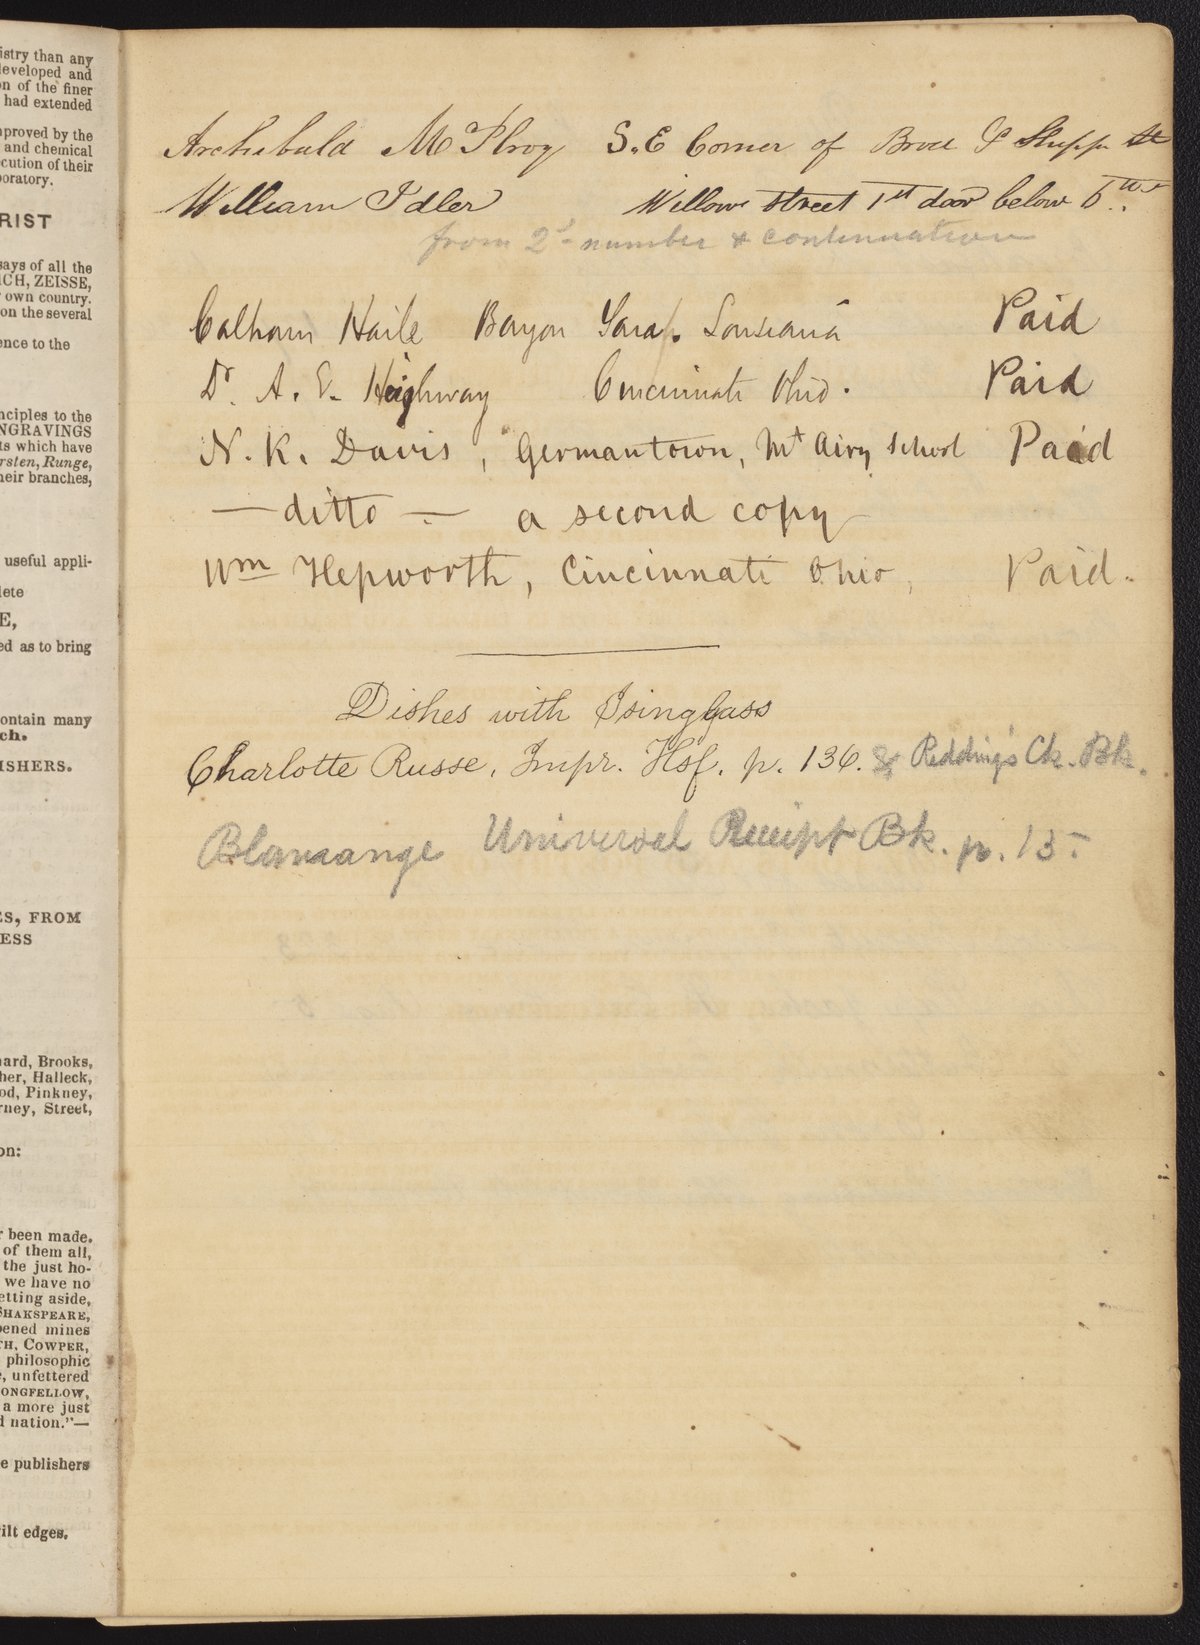 istry than any
developed and
on of the finer
had extended
nproved by the
and chemical
cution of their
boratory.
RIST
says of all the
ICH, ZEISSE,
own country.
on the several
ence to the
nciples to the
NGRAVINGS
ts which have
rsten, Runge,
heir branches,
useful appli-
lete
E,
ed as to bring
ontain many
ch.
ISHERS.
ES, FROM
ESS
hard, Brooks,
her, Halleck,
od, Pinkney,
rney, Street,
on:
r been made.
of them all,
the just ho-
we have no
etting aside,
SHAKSPEARE,
pened mines
TH, COWPER,
philosophic
e, unfettered
ONGFELLOW,
a more just
d nation."—
e publishers
ilt edges.
Archibald McIlroy S.E Corner of Broad & Shipp St
William Idler Willow street 1st door below 6th
from 2d number & continuation
Calhoun Haile Bayou Sara, Louisiana Paid
Dr. A. E. Heighway Cincinnati Ohio. Paid
N. K. Davis, Germantown, Mt Airy School Paid
— ditto — a second copy
Wm Hepworth, Cincinnati Ohio, Paid.
Dishes with Isinglass
Charlotte Russe, Impr. Hsf. p. 136. & Redding's Ck. Bk.
Blamange Universal Receipt Bk. p. 15.